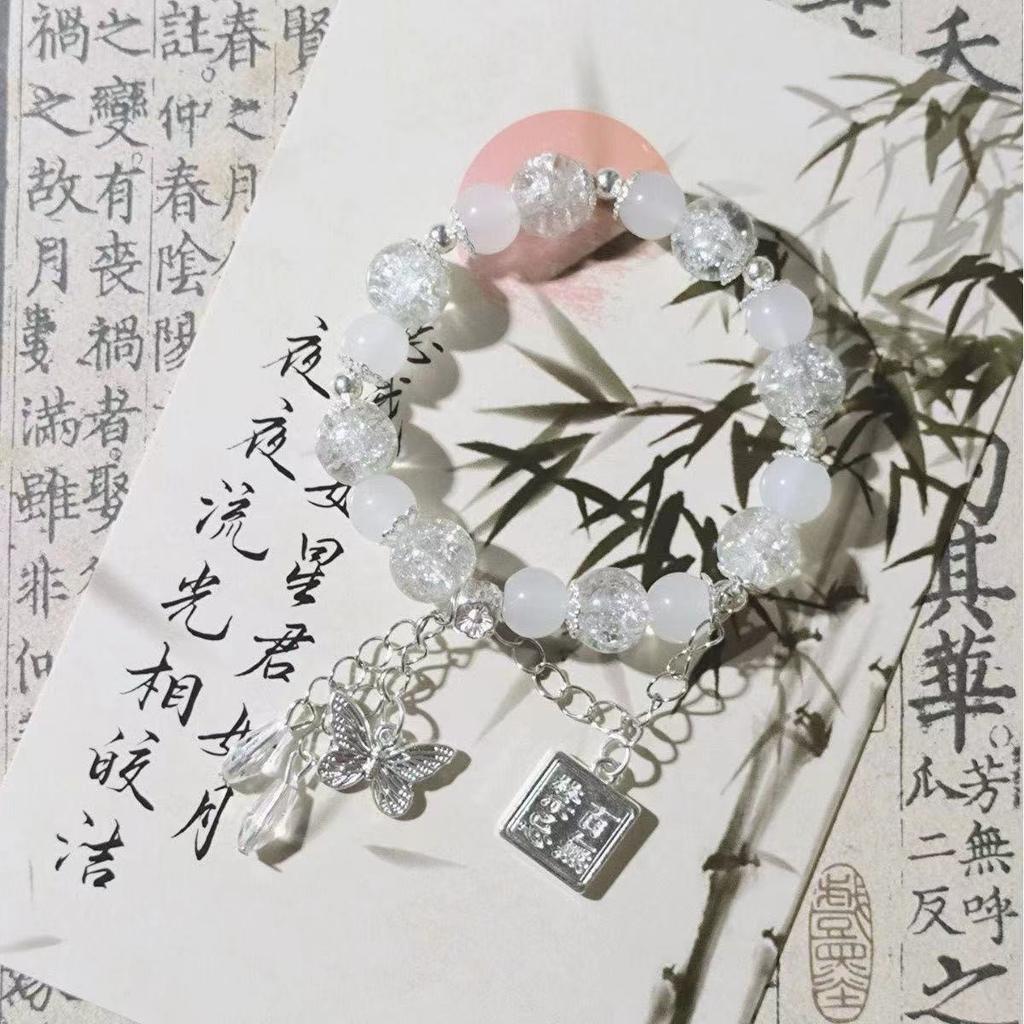 夭
其華
芳無呼
瓜二反
之
我如星君如月
夜夜流光相皎洁
賢
春之月
註仲春陰陽
之變有喪禍者娶
禍之故月數滿雖非仲